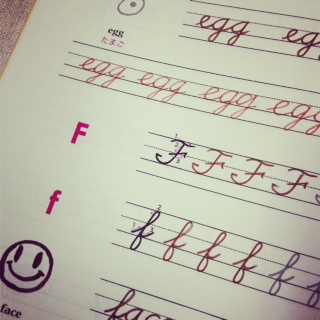 egg egg
egg
たまご
egg egg egg egg
F F F F F
f f f f f f
face
face